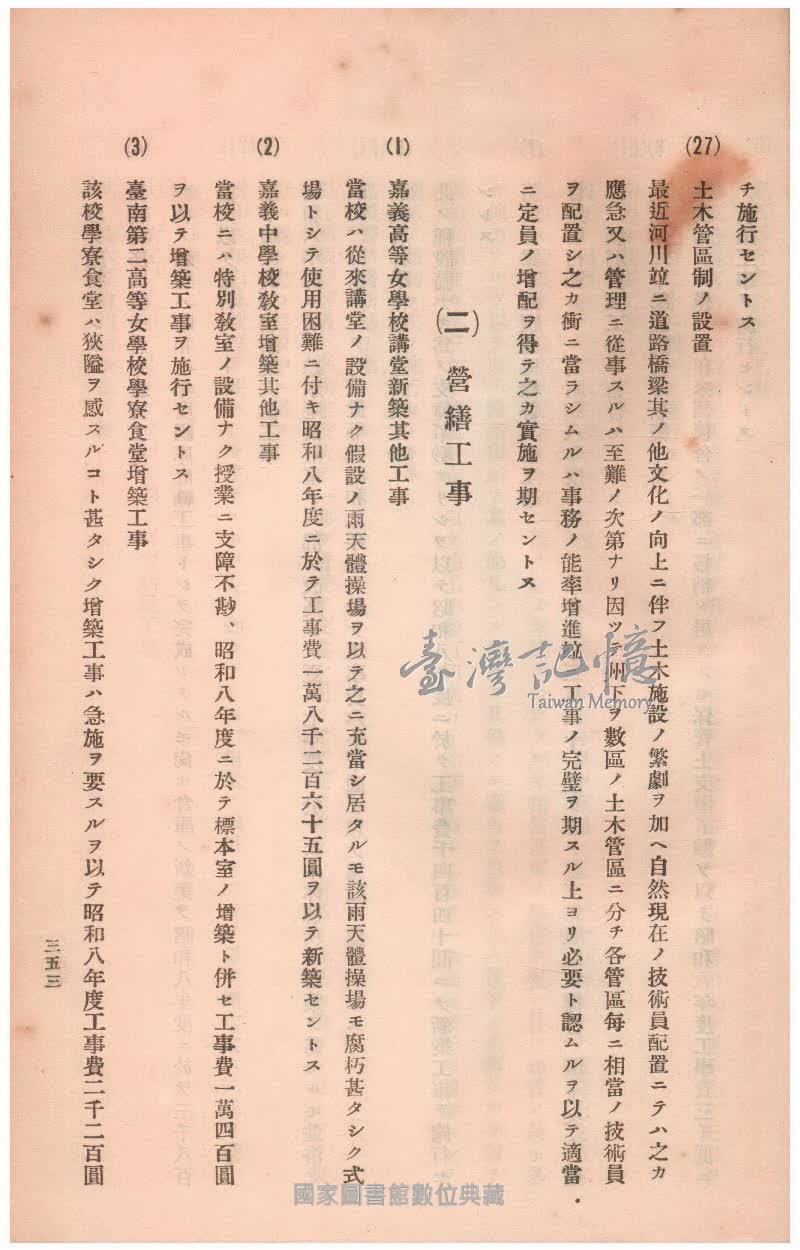 チ施行セントス
(27) 土木管區制ノ設置
最近河川竝ニ道路橋梁其ノ他文化ノ向上ニ伴フ土木施設ノ繁劇ヲ加ヘ自然現在ノ技術員配置ニテハ之カ
應急又ハ管理ニ從事スルハ至難ノ次第ナリ因ツテ州下ヲ數區ノ土木管區ニ分チ各管區每ニ相當ノ技術員
ヲ配置シ之カ衝ニ當ラシムルハ事務ノ能率增進竝ニ工事ノ完璧ヲ期スル上ヨリ必要ト認ムルヲ以テ適當
ニ定員ノ增配ヲ得テ之カ實施ヲ期セントス
(二) 營繕工事
(1) 嘉義高等女學校講堂新築其他工事
當校ハ從來講堂ノ設備ナク假設ノ雨天體操場ヲ以テ之ニ充當シ居タルモ該雨天體操場モ腐朽甚タシク式
場トシテ使用困難ニ付キ昭和八年度ニ於テ工事費一萬八千二百六十五圓ヲ以テ新築セントス
(2) 嘉義中學校敎室增築其他工事
當校ニハ特別敎室ノ設備ナク授業ニ支障不尠、昭和八年度ニ於テ標本室ノ增築ト併セ工事費一萬四百圓
ヲ以テ增築工事ヲ施行セントス
(3) 臺南第二高等女學校學寮食堂增築工事
該校學寮食堂ハ狹隘ヲ感スルコト甚タシク增築工事ハ急施ヲ要スルヲ以テ昭和八年度工事費二千二百圓
三五三
臺灣記憶
Taiwan Memory
國家圖書館數位典藏